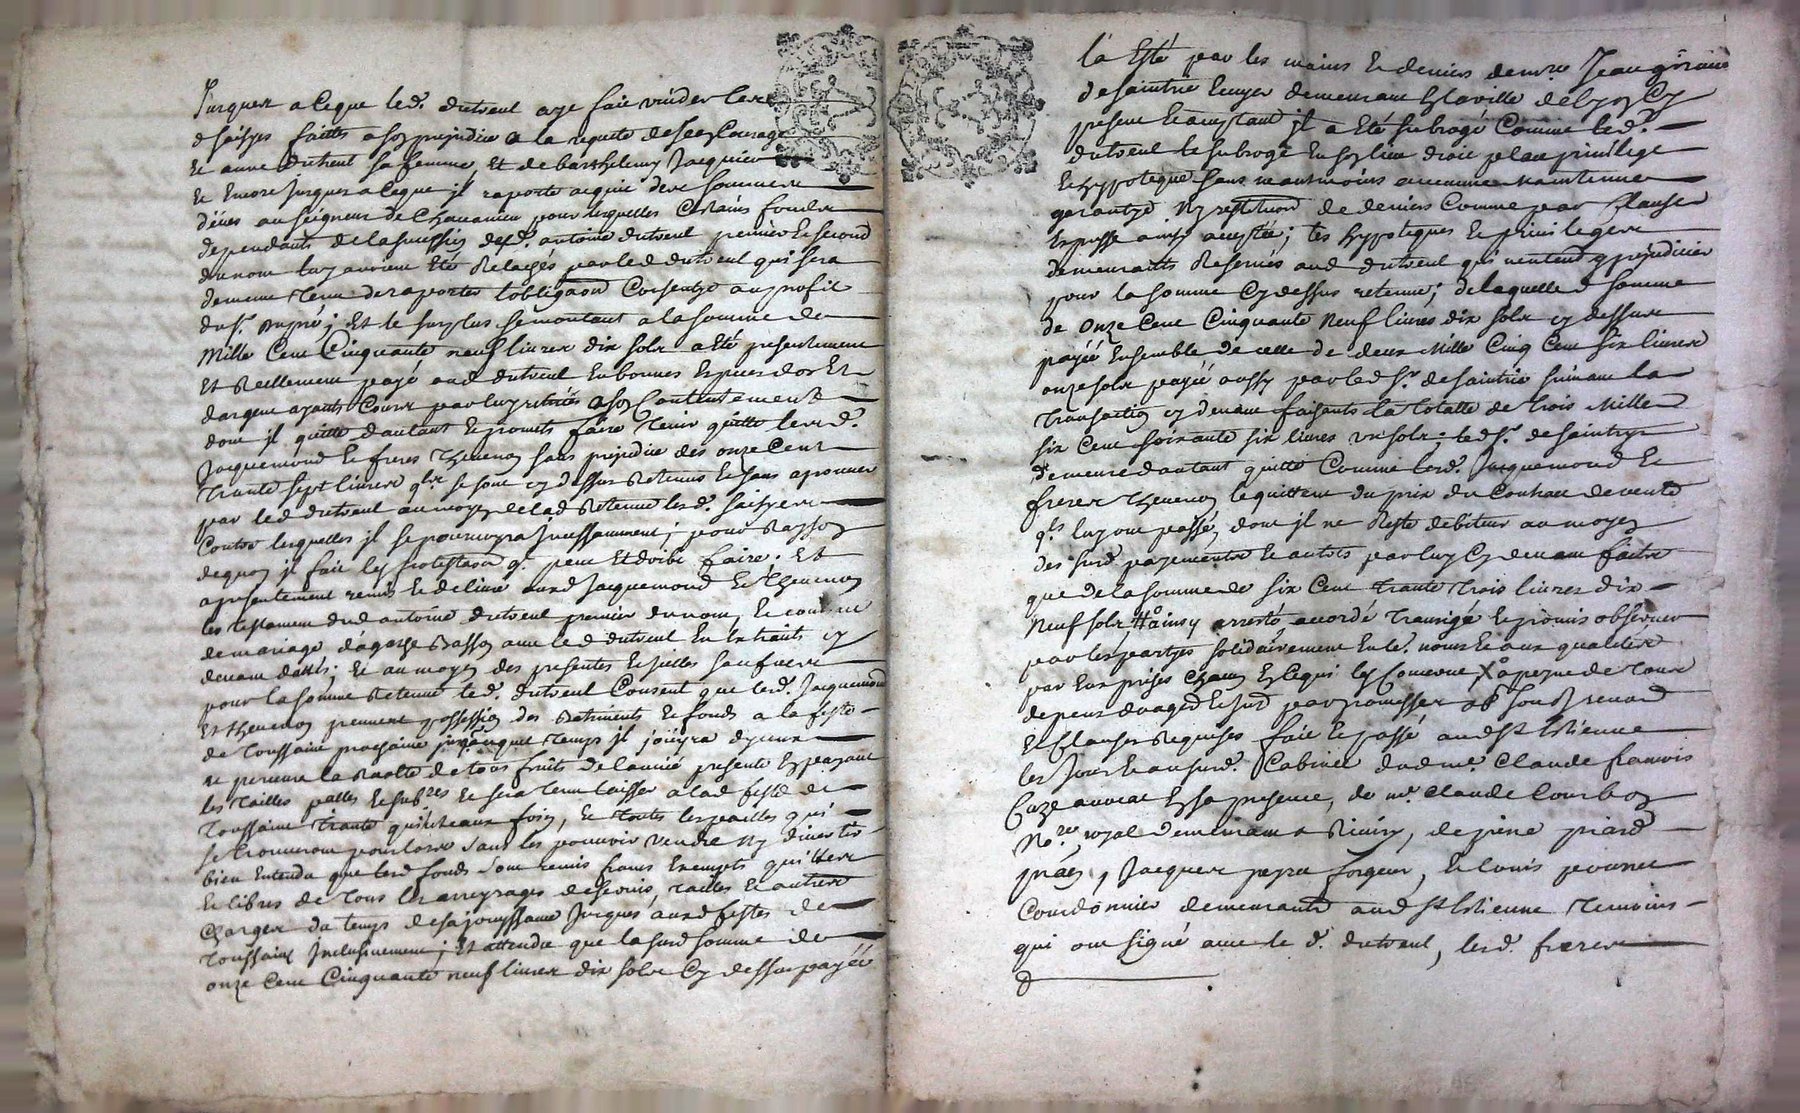 Jusques a ce que led. dutreul aye fait vuider les
d saisyes faittes a son prejudice a la requete de Courage
et anne dutreul sa femme, Et de barthelemy Jacquier
Et Encore Jusques a ce que jl raporte acquit des sommes
deües au seigneur de pour lesquelles Certains fonds
dependants de la succession dud. antoine dutreul premier Et second
du nom luy avoient Eté Relachés par led dutreul qui sera
dememe Tenu de raporter l'obligaon Consentye au profit
du sr. dupré; Et le surplus se montant a la somme de
Mille Cent Cinquante neuf livres dix sols a Eté presentement
Et Reellement payé aud dutreul En bonnes Especes d'or Et
d'argent ayants Cours par luy retirés a son Contentement
dont jl quitte d'autant Et promet faire Tenir quitte lesd.
Jacquemond Et freres Thevenon sans prejudice des onze Cent
Trante sept livres qui se sont cy dessus Retenus Et sans aprouver
par led dutreul au moyen de lad Retenue lesd. saisyes
Contre lesquelles jl se pourvoyra Incessamment; pour Rayson
dequoy jl fait les protestaons qu. peut Et doibt faire; Et
a presentement remis Et delivré auxd Jacquemond Et Thevenon
les testament dud antoine dutreul premier du nom, Et contract
de mariage d'agathe Basson avec led dutreul En Extraits cy
devant dattés; Et au moyen des presentes Et jcelles sauf
pour la somme Retenue led. dutreul Consent que lesd. Jacquemond
Et Thevenon prennent possession des Batiments Et fonds a la feste
de Toussaint prochaine jusqu'auquel Temps jl joüyra d'yceux
et percevra la Recolte de tous fruits de l'année presente En payant
les Tailles Et Et sera Tenu laisser a lad feste de
Toussaint Trante quinteaux foin, Et Toutes les pailles qui
se trouveront pour lors sans les pouvoir vendre ny divertir
bien Entendu que lesd fonds sont remis francs Exempts quittes
Et libres de Tous les arreyrages de servis, Tailles Et autres
Charges du temps de sa jouyssance Jusques auxd festes de
Toussaint Inclusivement; Et attendu que la susd somme de
onze Cent Cinquante neuf livres dix sols Cy dessus payée
l'a Esté par les mains Et deniers de mre Jean
de saintrie Ecuyer demeurant En la ville de lyon Cy
present Et acceptant jl a Eté subrogé Comme led.
dutreul le subroge En son lieu droit place privilege
Et hypoteque sans neantmoins aucune Maintenue
garantye Ny restituon de deniers Comme par Clause
Expresse ainsy acceptée; les hypoteques Et privileges
demeurants Reservés aud dutreul qui n'entend y prejudicier
pour la somme Cy dessus retenue; de laquelle d somme
de onze Cent Cinquante Neuf livres dix sols cy dessus
payée Ensemble de celle de deux Mille Cinq Cent six livres
onze sols payée aussy par led sr. de saintrie suivant la
Transaction cy devant faisants la Totalle de Trois Mille
six Cent soixante six livres un sols; led sr. de saintrye
demeure d'autant quitte Comme lesd. Jacquemond Et
freres Thevenon le quittent du prix du Contract de vente
qu'ls luy ont passé, dont jl ne Reste debiteur au moyen
des susd. payements Et autres par luy Cy devant faits
que de la somme de six Cent Trante Trois livres dix
Neuf sols, ainsy arresté accordé Transigé Et promis observer
par les partyes solidairement Esd. noms Et aux qualités
par Eux prises Chacun En ce qui les Concerne, a peyne de Tous
depens domages Et jnt par promesses ob sousmissions renond
Et Clauses Requises fait Et passé aud st Estienne
les Jour Et an susd. Cabinet dud mr. Claude francois
avocat En sa presence, de mr. Claude Courbon
Nore. royal demeurant a de pierre piard
Jacques peyre forgeur, Et Louis
Courdonnier demeurants aud st Estienne Temoins
qui ont signé avec le d. dutreul, lesd. freres